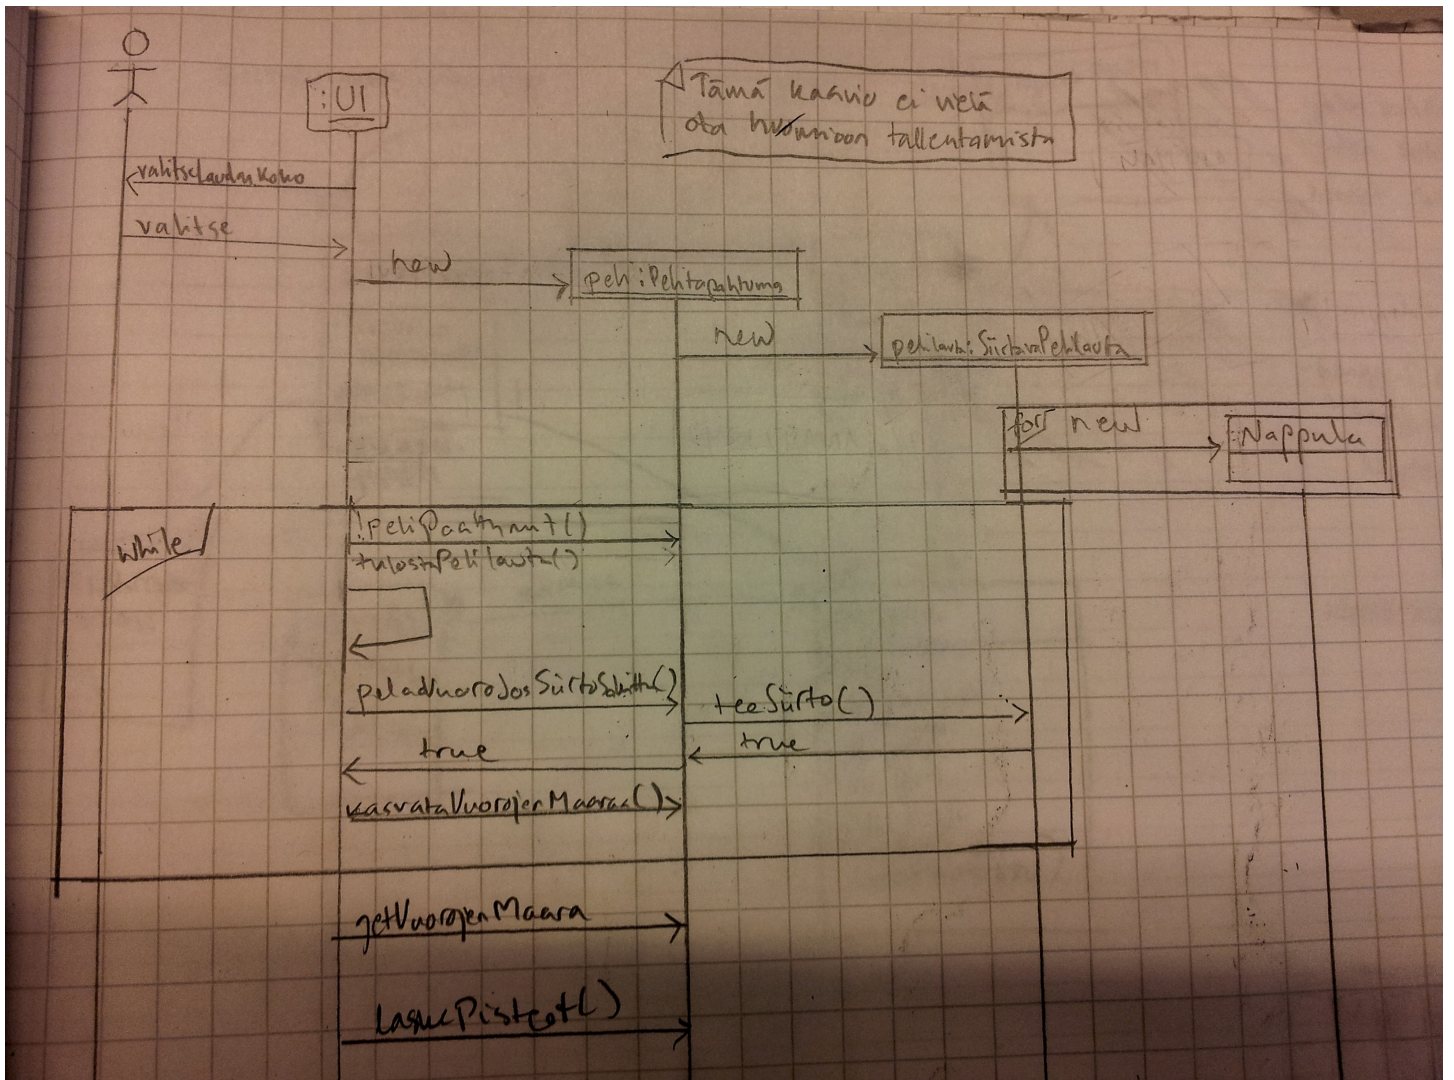 :UI
Tämä kaavio ei vielä
ota huomioon tallentamista
valitseLaudanKoko
valitse
new
peli:Pelitapahtuma
new
pelilauta:SiirtavaPelilauta
for
new
:Nappula
while
!peliPaattynut()
tulostaPelilauta()
pelaaVuoroJosSiirtoSallittu()
teeSiirto()
true
true
kasvataVuorojenMaaraa()
getVuorojenMaara
laskePisteet()